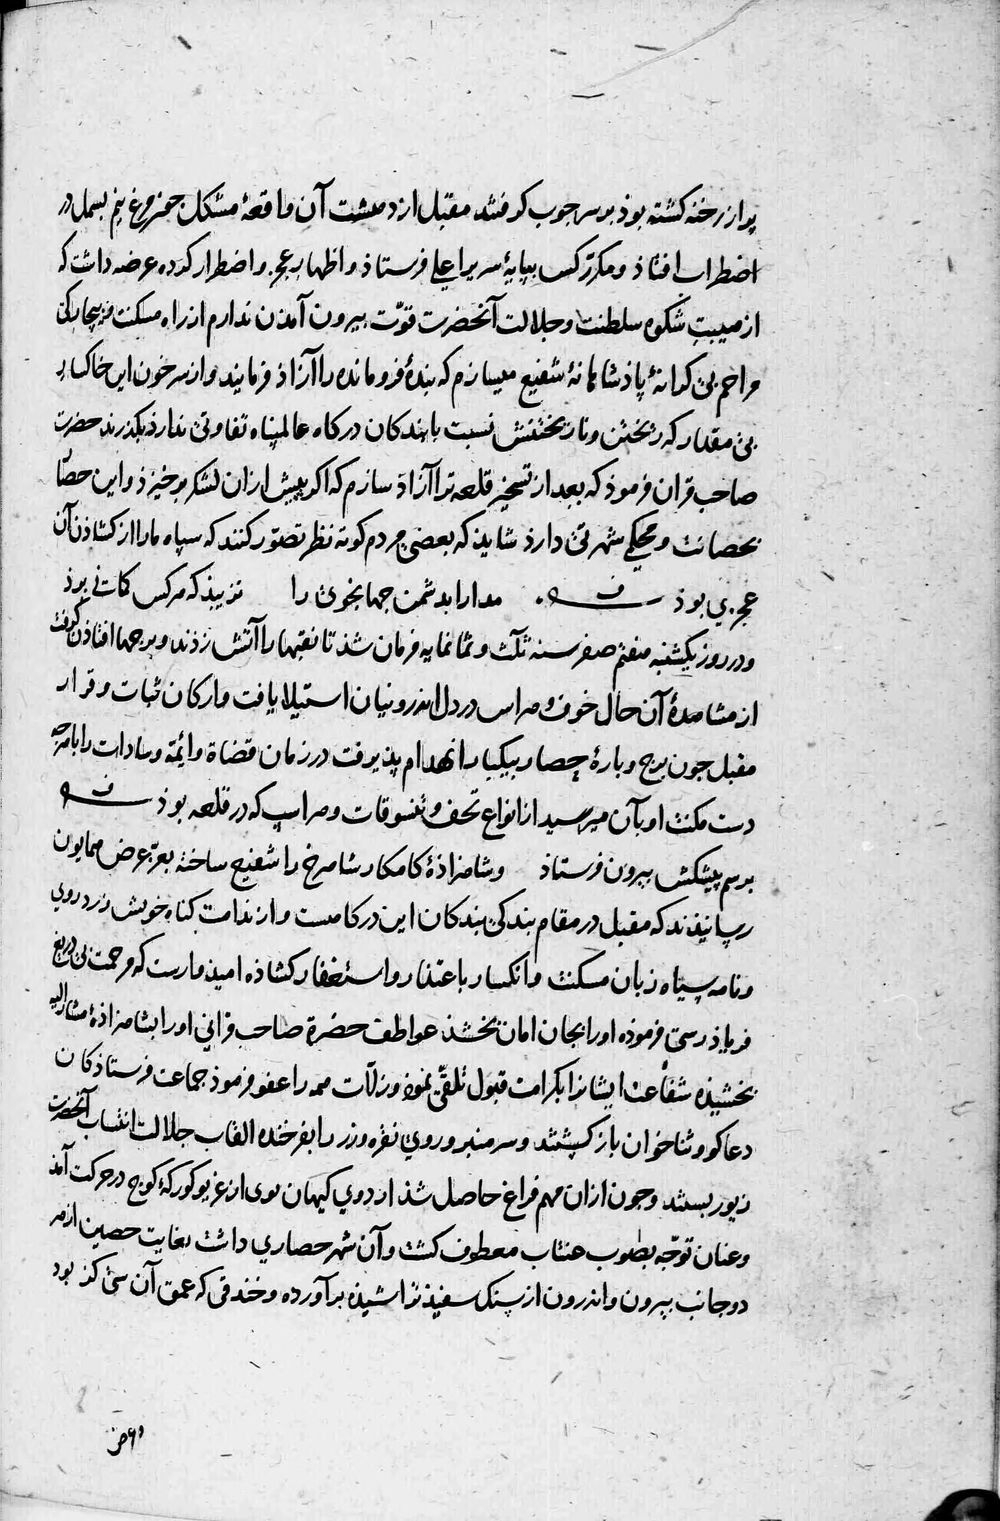 پر از رخنه کشته بوذ بر سر جوب کرفتند مقبل از دهشت آن واقعهٔ مشکل جون مرغ نیم بسمل در
اضطراب افتاذ و مکرر کس بپایهٔ سریر اعلی فرستاذ و اظهار عجز و اضطرار کرده عرضه داشت که
از هیبت شکوه سلطنت و جلالت آنحضرت قوّت بیرون آمدن ندارم از راه مسکنت و بیجارکی
مراحم بی کرانهٔ پاذشاهانهٔ شفیع میسازم که بندهٔ فرومانده را آزاذ فرمایند و از سر خون این خاکسار
بی مقدار که ریختن و ناریختنش نسبت با بندکان درکاه عالمپناه تفاوتی ندارذ بکذرند حضرت
صاحب قران فرموذ که بعد از تسخیر قلعه ترا آزاذ سازم که اکر پیش ازان لشکر برخیزذ و این حصار
بحصانت و محکمی شهرتی دارذ شایذ که بعضی مردم کوته نظر تصوّر کنند که سپاه ما را از کشاذن آن
عجزی بوذ مدارا بدشمن جهانجوی را نزیبذ که هرکس کمانی بوذ
و در روز یکشنبه هفتم صفر سنه ثلث و ثمانمایه فرمان شد تا نقبها را آتش زدند و برجها افتاذن کرفت
از مشاهدهٔ آن حال خوف و هراس در دل اندرونیان استیلا یافت و ارکان ثبات و قرار
مقبل جون برج و بارهٔ حصار بیکبار انهدام پذیرفت در زمان قضاة و ایمّه و سادات را با هرچه
دست مکنت او بآن میرسید از انواع تحف و تنسوقات و هر اسپ که در قلعه بوذ
برسم پیشکش بیرون فرستاذ و شاهزاذهٔ کامکار شاهرخ را شفیع ساخته بعزّ عرض همایون
رسانیذند که مقبل در مقام بندکی بندکان این درکاهست و از ندامت کناه خویش زرد روی
و نامه سیاه زبان مسکنت و انکسار باعتذار و استغفار کشاذه امیذوارست که مرحمت بی دریغ
فریاذ رسی فرموذه او را بجان امان بخشذ عواطف حضرة صاحب قرانی او را بشاهزاذهٔ مشار الیه
بخشیذه شفاعت ایشانرا بکرامت قبول تلقّی نموذ و زلّات همه را عفو فرموذ جماعت فرستاذکان
دعاکو و ثناخوان باز کشتند و سر منبر و روی نقره و زر را بفرخنده القاب جلالت انتساب آنحضرت
زیور بستند و چون ازان مهم فراغ حاصل شذ اردوی کیهان پوی از غریو کورکهٔ کوج در حرکت آمذ
و عنان توجّه بصوب عنتاب معطوف کشت و آن شهر حصاری داشت بغایت حصین از هر
دو جانب بیرون و اندرون از سنک سفیذ تراشیذه برآورده و خندقی که عمق آن سی کز بوذ
و عرض